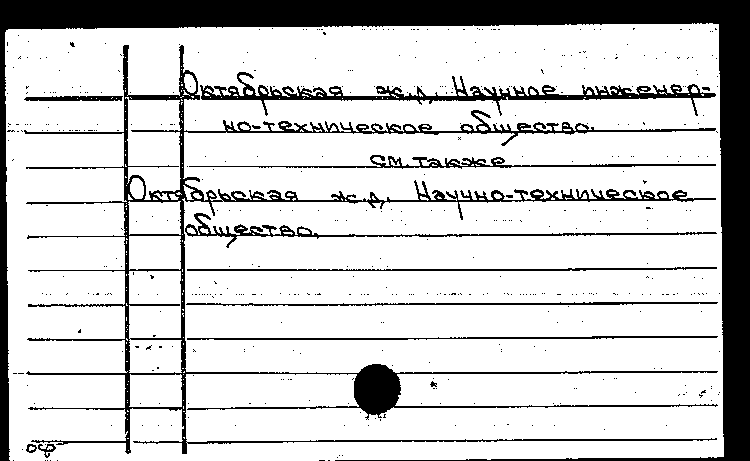 Октябрьская ж.д. Научное инженер-
но-техническое общество.
см. также
Октябрьская ж.д. Научно-техническое
общество.
оф